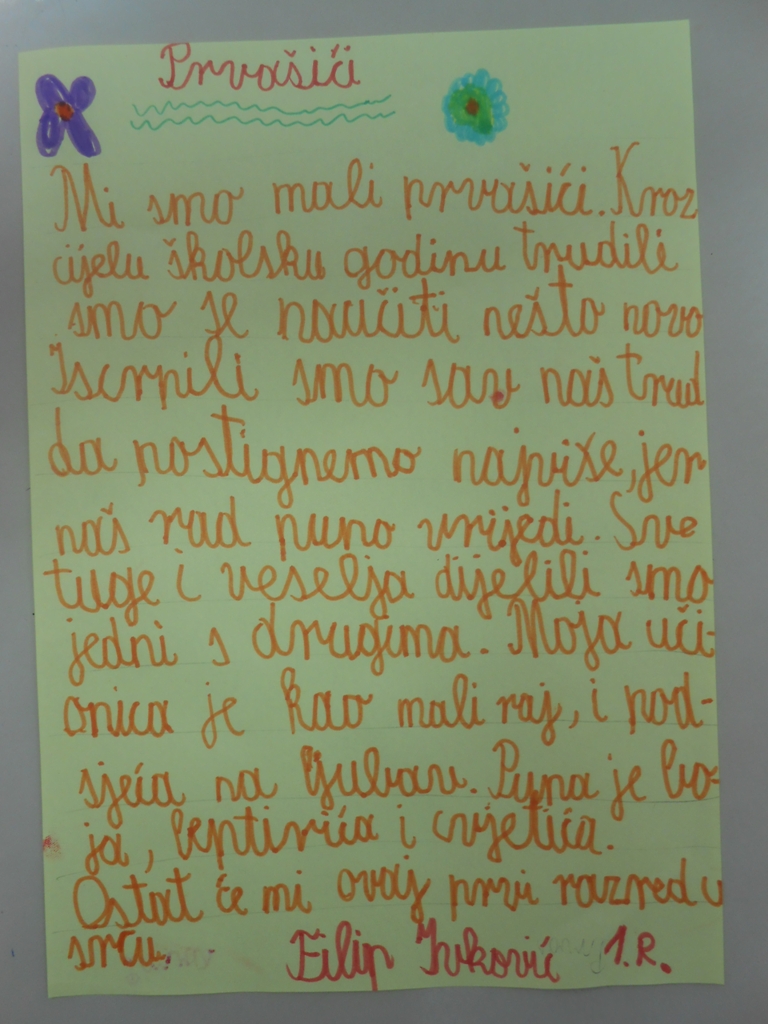 Prvašići
Mi smo mali prvašići. Kroz
cijelu školsku godinu trudili
smo se naučiti nešto novo
Iscrpili smo sav naš trud
da postignemo najviše, jer
naš rad puno vrijedi. Sve
tuge i veselja dijelili smo
jedni s drugima. Moja uči-
onica je kao mali raj, i pod-
sjeća na ljubav. Puna je bo-
ja, leptirića i cvjetića.
Ostat će mi ovaj prvi razred u
srcu. Filip Ivković 1.R.